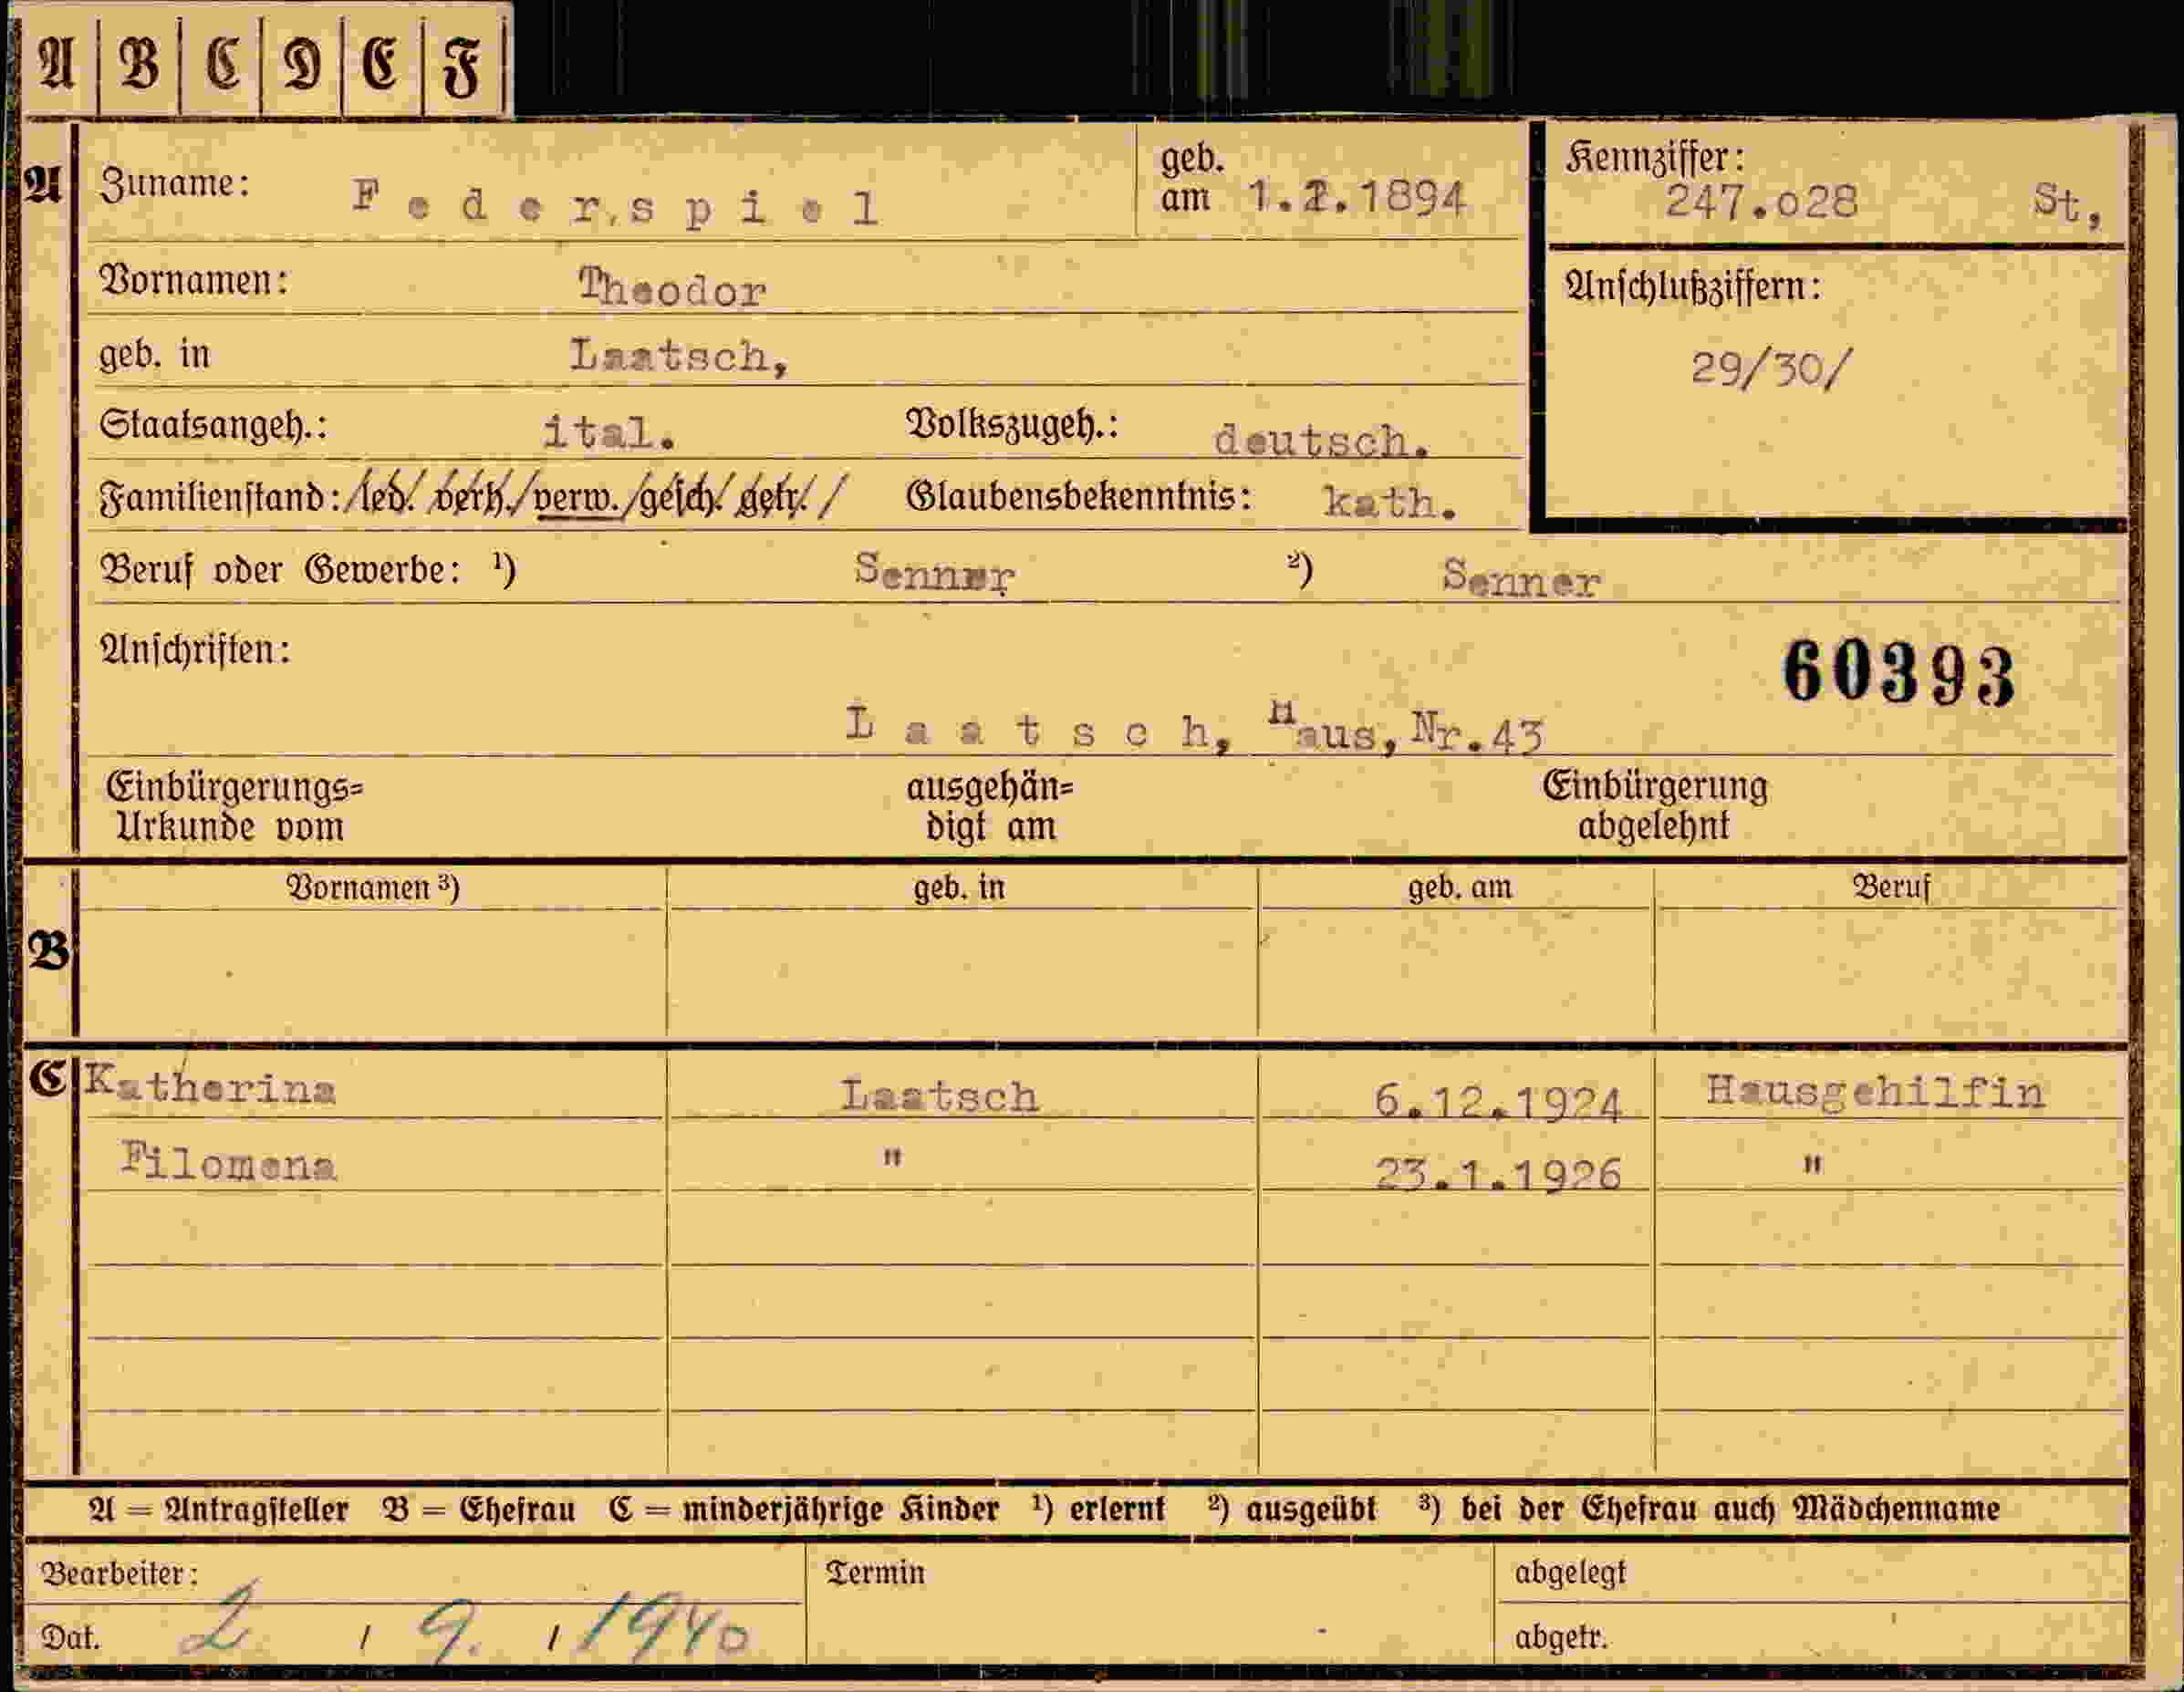 A B C D E F
A Zuname: Federspiel geb. am 1.2.1894 Kennziffer: 247.028 St,
Vornamen: Theodor Anschlußziffern:
geb. in Laatsch, 29/30/
Staatsangeh.: ital. Volkszugeh.: deutsch.
Familienstand: /led./verh./verw./gesch./getr./ Glaubensbekenntnis: kath.
Beruf oder Gewerbe: ¹) Senner ²) Senner
Anschriften: 60393
Laatsch, Haus, Nr.43
Einbürgerungs= ausgehän= Einbürgerung
Urkunde vom digt am abgelehnt
B Vornamen ³) geb. in geb. am Beruf
C Katherina Laatsch 6.12.1924 Hausgehilfin
Filomena " 23.1.1926 "
A = Antragsteller B = Ehefrau C = minderjährige Kinder ¹) erlernt ²) ausgeübt ³) bei der Ehefrau auch Mädchenname
Bearbeiter: Termin abgelegt
Dat. 2 / 9. / 1940 abgetr.